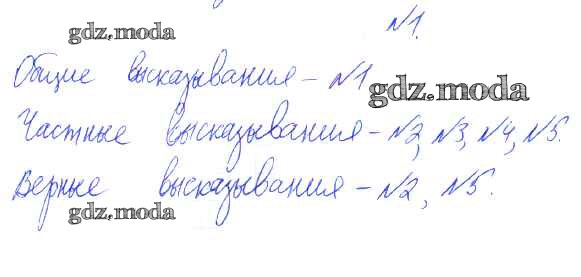 №1.
gdz.moda
Общие высказывания – №1
gdz.moda
Частные высказывания – №2, №3, №4, №5.
Верные высказывания – №2, №5.
gdz.moda